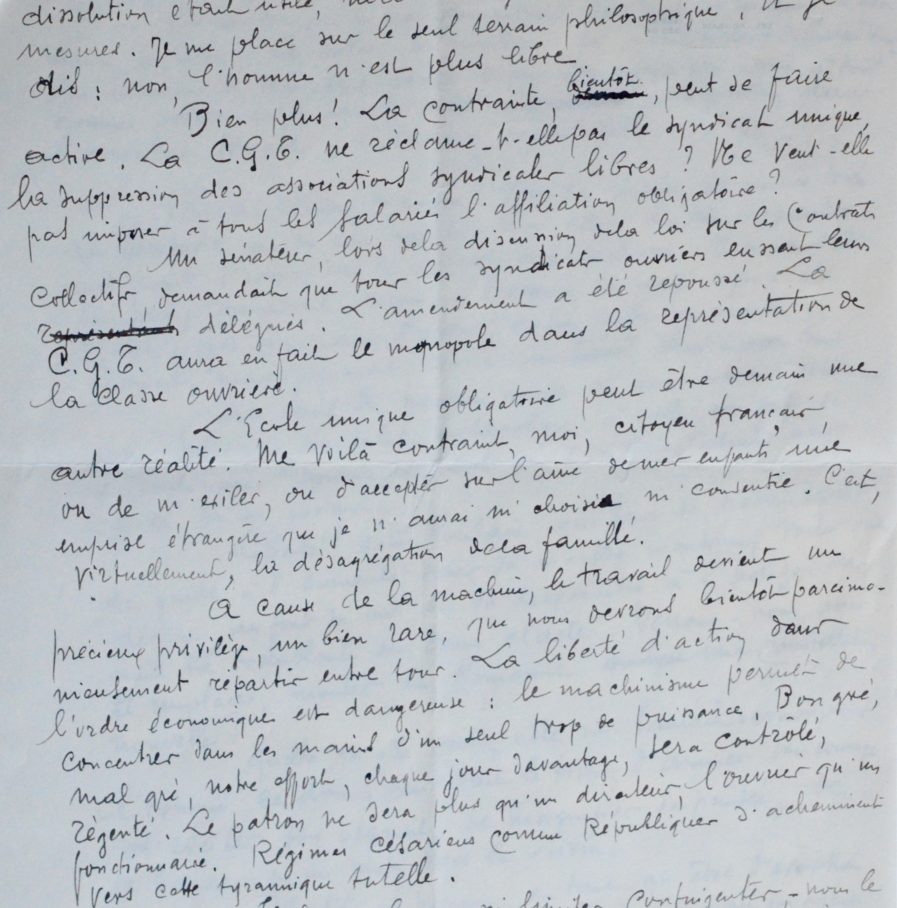 dissolution était
mesures. Je me place sur le seul terrain philosophique, et je
dis : non, l'homme n'est plus libre
Bien plus! La contrainte, bientôt, peut se faire
active. La C.G.T. ne réclame-t-elle pas le syndicat unique,
la suppression des associations syndicales libres ? Ne veut-elle
pas imposer à tous les salariés l'affiliation obligatoire ?
Un sénateur, lors de la discussion de la loi sur les Contrats
Collectifs, demandait que tous les syndicats ouvriers eussent leurs
représentants délégués. L'amendement a été repoussé. La
C.G.T. aura en fait le monopole dans la représentation de
la classe ouvrière.
L'Ecole unique obligatoire peut être demain une
autre réalité. Me voilà contraint, moi, citoyen français,
ou de m'exiler, ou d'accepter sur l'âme de mes enfants une
emprise étrangère que je n'aurai ni choisie ni consentie. C'est,
virtuellement, la désagrégation de la famille.
A cause de la machine, le travail devient un
précieux privilège, un bien rare, que nous devrons bientôt parcimo-
nieusement répartir entre tous. La liberté d'action dans
l'ordre économique est dangereuse : le machinisme permet de
concentrer dans les mains d'un seul trop de puissance. Bon gré,
mal gré, notre effort, chaque jour davantage, sera contrôlé,
régenté. Le patron ne sera plus qu'un directeur, l'ouvrier qu'un
fonctionnaire. Régimes césariens comme Républiques s'acheminent
vers cette tyrannique tutelle.
contingenter, nous le